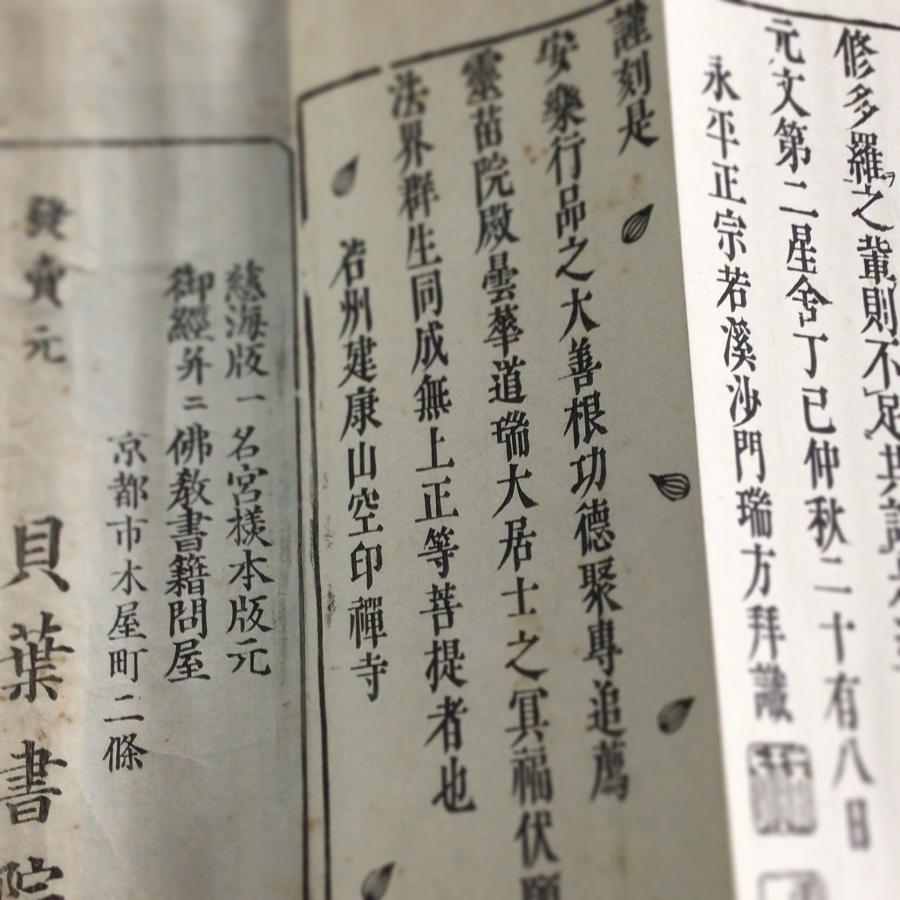 修多羅之輩則不足
元文第二星舍丁巳仲秋二十有八日
永平正宗若溪沙門瑞方拜識
謹刻是
安樂行品之大善根功德聚專追薦
靈苗院殿曇華道瑞大居士之冥福伏願
法界群生同成無上正等菩提者也
若州建康山空印禪寺
慈海版一名宮樣本版元
御經并ニ佛敎書籍問屋
京都市木屋町二條
發賣元
貝葉書院